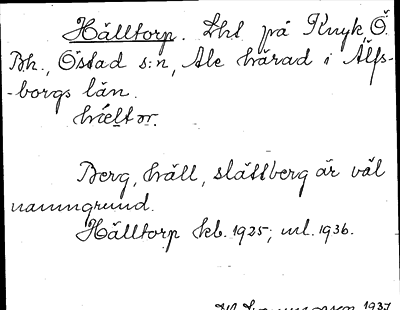 Hälltorp. Lht på Knyk Ö.
Bh., Östad s:n, Ale härad i Älfs-
-borgs län.
hæltor.
Berg, häll, slättberg är väl
namngrund.
Hälltorp kb. 1925; ml. 1936.
1937